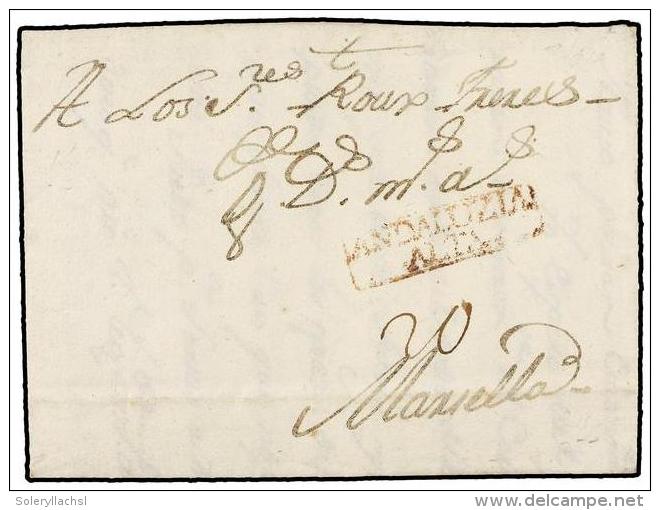 A Los S.res Roux Freres
D.s m.s a.s
ANDALUZIA
ALTA
20
Marsella
Soleryllachsl
delcampe.net